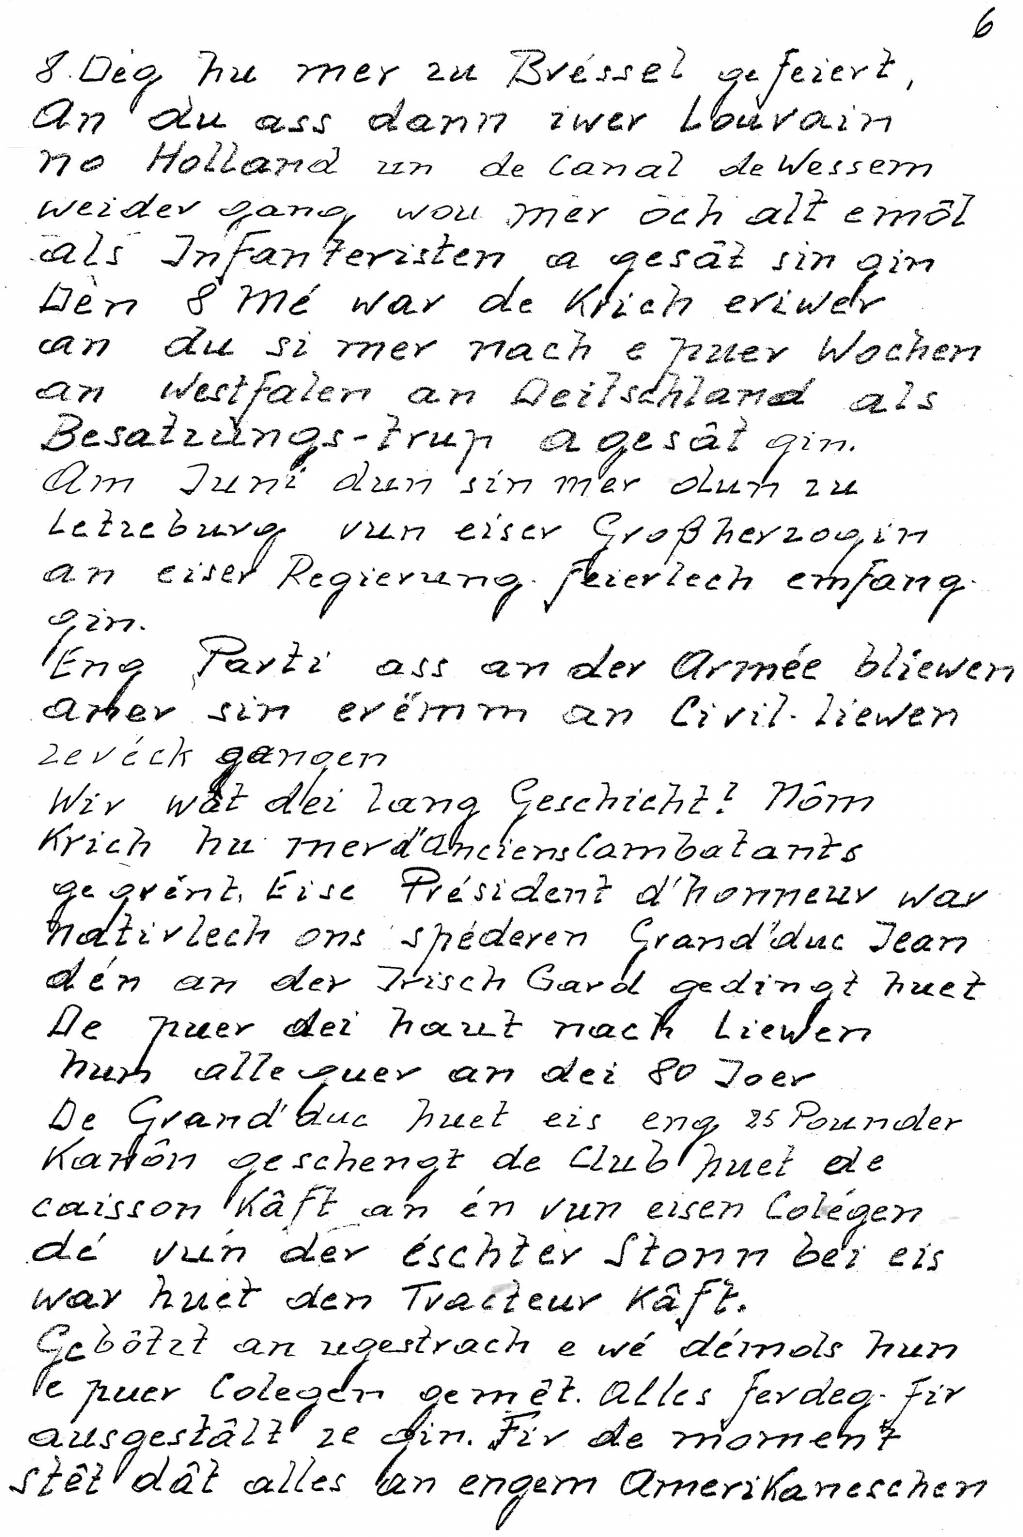 6
8. Dèg hu mer zu Bréssel gefeiert,
An du ass dann iwer Louvain
no Holland un de Canal de Wessem
weider gang wou mer och alt emôl
als Infanteristen a gesât sin gin
Dèn 8 Mé war de Krich eriwer
an du si mer nach e puer Wochen
an Westfalen an Deitschland als
Besatzungs-trup agesât gin.
Am Juni dun sin mer dun zu
Letzeburg vun eiser Großherzogin
an eiser Regierung feierlech emfang
gin.
Eng Parti ass an der Armée bliewen
aner sin erëmm an Civil-liewen
zeréck gangen
Wir wât dei lang Geschicht! Nôm
Krich hu mer d'Anciens Combatants
gegrënt. Eise Président d'honneur war
natirlech ons spéderen Grand'duc Jean
dén an der Irisch Gard gedingt huet
De puer dei haut nach Liewen
hun alleguer an dei 80 Joer
De Grand'duc huet eis eng 25 Pounder
Kanôn geschengt de Club huet de
caisson Kâft an én vun eisen Colégen
dé vun der éschter Stonn bei eis
war huet den Tracteur Kâft.
Gebôtzt an ugestrach e wé démols hun
e puer Colegen gemêt. Alles ferdeg fir
ausgestâlt ze gin. Fir de moment
stêt dât alles an engem Amerikaneschen